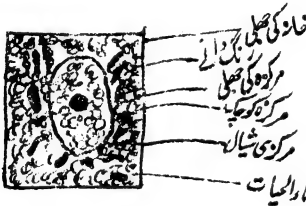 خانہ کی جھلی
رنگ دانے
مرکزہ کی جھلی
مرکزہ کوچک
مرکزی شیال